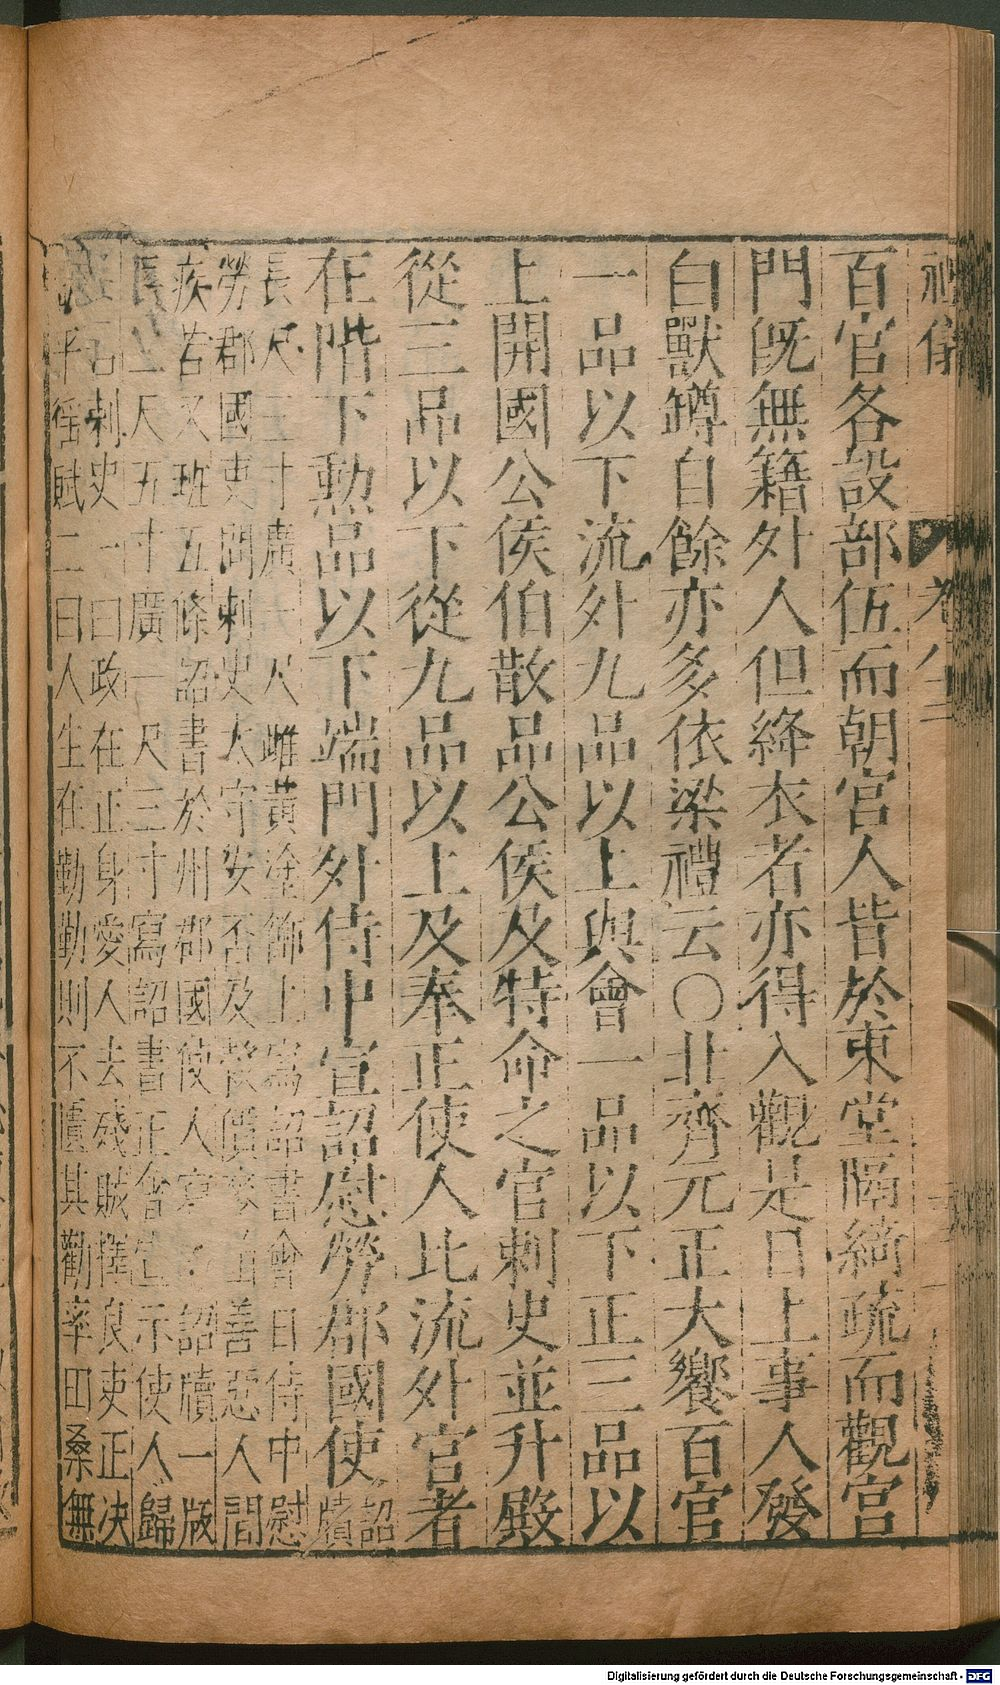 百官各設部伍而朝宫人皆於東堂隔綺疏而觀宫
門既無籍外人但絳衣者亦得入觀是日上事人發
白獸罇自餘亦多依梁禮云〇北齊元正大饗百官
一品以下流外九品以上與會一品以下正三品以
上開國公侯伯散品公侯及特命之官刺史並升殿
從三品以下從九品以上及奉正使人比流外官者
在階下勳品以下端門外侍中宣詔慰勞郡國使詔牘
長尺三寸廣一尺雌黄塗飾上寫詔書會日侍中慰
勞郡國吏問刺史太守安否及穀價麥苗善惡人間
疾苦又班五條詔書於州郡國使人寫詔牘一版
長二尺五寸廣一尺三寸寫詔書正會宣示使人歸
刺史一曰政在正身愛人去殘賊擇良吏正決
平徭賦二曰人生在勤勤則不匱其勸率田桑無
Digitalisierung gefördert durch die Deutsche Forschungsgemeinschaft - DFG